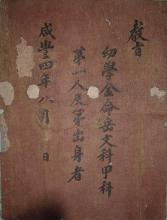 教旨
幼學金命岳文科甲科
第一人及第出身者
咸豐四年八月 日